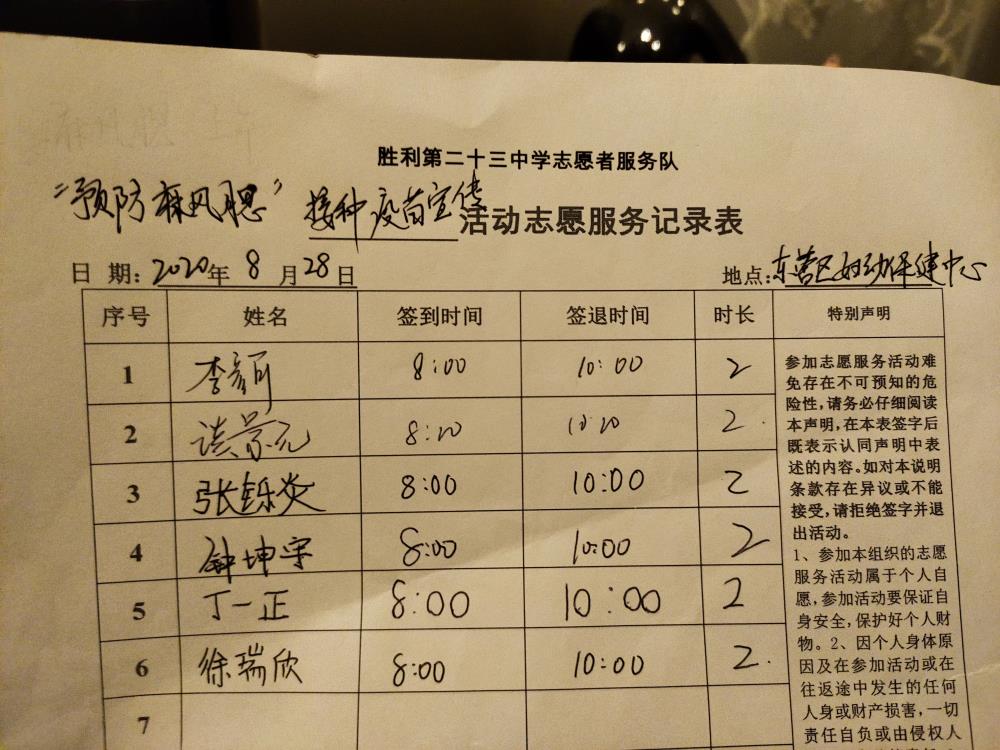 胜利第二十三中学志愿者服务队
“预防麻风腮”接种疫苗宣传活动志愿服务记录表
日 期：2020年 8 月 28 日 地点：东营区妇幼保健中心
序号 姓名 签到时间 签退时间 时长 特别声明
1 8:00 10:00 2
2 谈景元 8:20 10:20 2
3 张铄炎 8:00 10:00 2
4 钟坤宇 8:00 10:00 2
5 丁一正 8:00 10:00 2
6 徐瑞欣 8:00 10:00 2
7
参加志愿服务活动难
免存在不可预知的危
险性，请务必仔细阅读
本声明，在本表签字后
既表示认同声明中表
述的内容。如对本说明
条款存在异议或不能
接受，请拒绝签字并退
出活动。
1、参加本组织的志愿
服务活动属于个人自
愿，参加活动要保证自
身安全，保护好个人财
物。2、因个人身体原
因及在参加活动或在
往返途中发生的任何
人身或财产损害，一切
责任自负或由侵权人